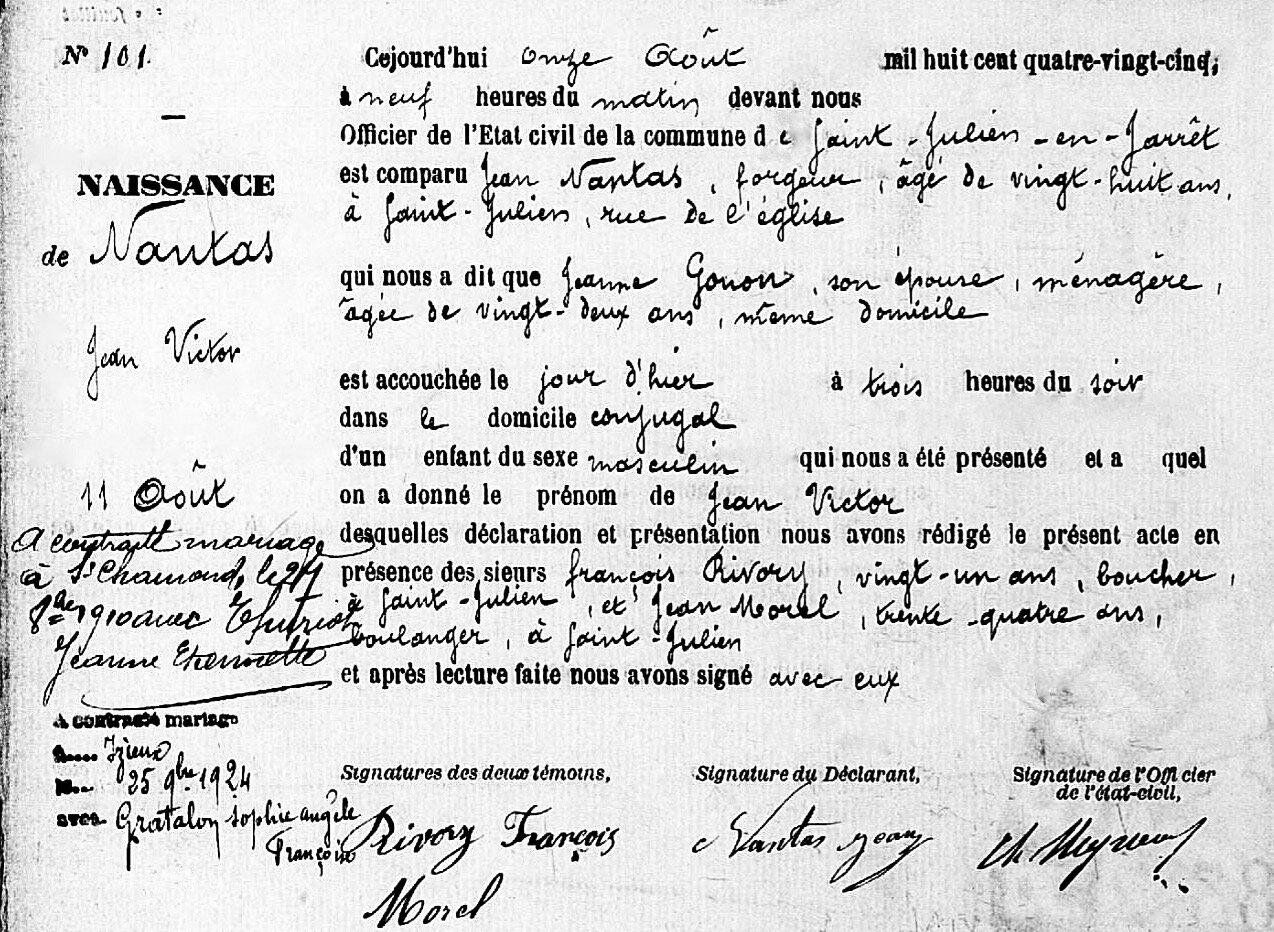 Nº 101.
NAISSANCE
de Nantas
Jean Victor
11 Août
A contracté mariage
à St Chamond, le 24
8bre 1910 avec
Jeanne Etiennette
A contracté mariage
à Izieux
le 25 9bre 1924
avec Gratalon Sophie Angèle
Françoise
Cejourd'hui onze Août mil huit cent quatre-vingt-cinq,
à neuf heures du matin devant nous
Officier de l'Etat civil de la commune de Saint-Julien-en-Jarrêt
est comparu Jean Nantas, forgeur, âgé de vingt-huit ans,
à Saint-Julien, rue de l'église
qui nous a dit que Jeanne Gonon, son épouse, ménagère,
âgée de vingt-deux ans, même domicile
est accouchée le jour d'hier à trois heures du soir
dans le domicile conjugal
d'un enfant du sexe masculin qui nous a été présenté et a quel
on a donné le prénom de Jean Victor
desquelles déclaration et présentation nous avons rédigé le présent acte en
présence des sieurs François Rivory, vingt-un ans, boucher,
à Saint-Julien, et Jean Morel, trente-quatre ans,
boulanger, à Saint-Julien
et après lecture faite nous avons signé avec eux
Signatures des deux témoins,
Rivory François
Morel
Signature du Déclarant,
Nantas Jean
Signature de l'Officier
de l'état-civil,